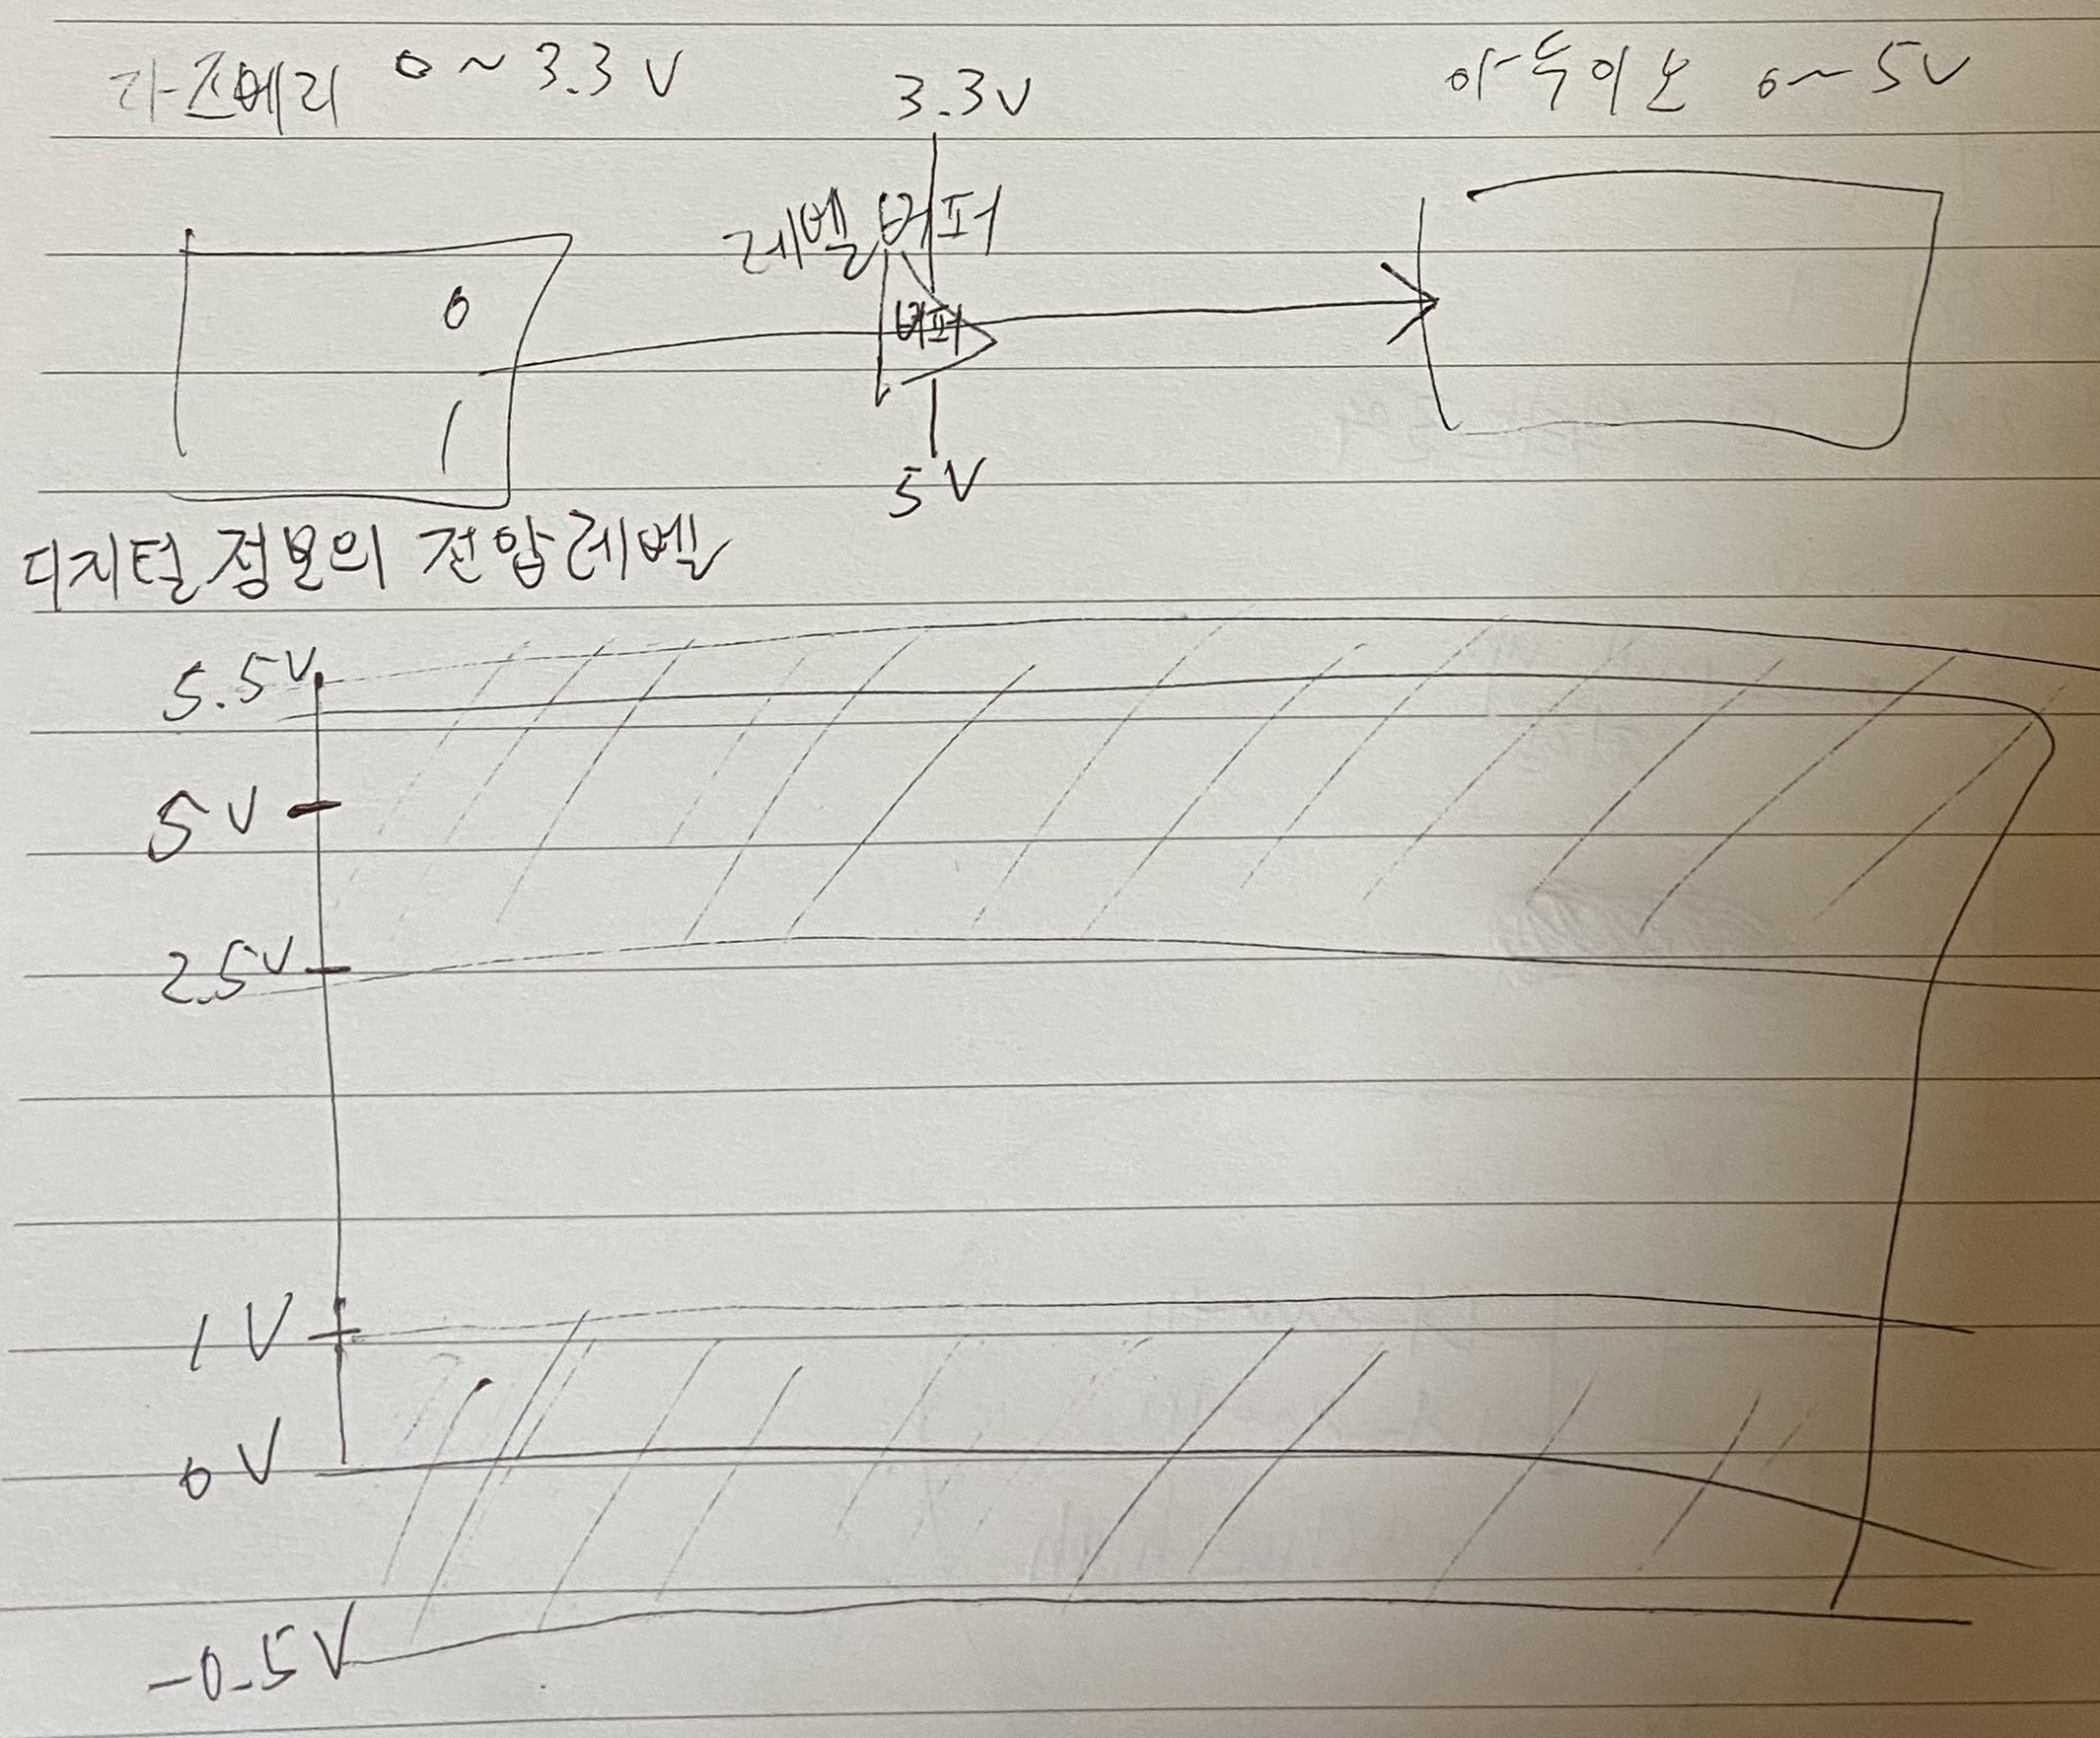 라즈베리 0 ~ 3.3 V
3.3V
아두이노 0 ~ 5V
레벨 버퍼
0
버퍼
1
5 V
디지털 정보의 전압레벨
5.5V
5 V
2.5V
1 V
0 V
-0.5V